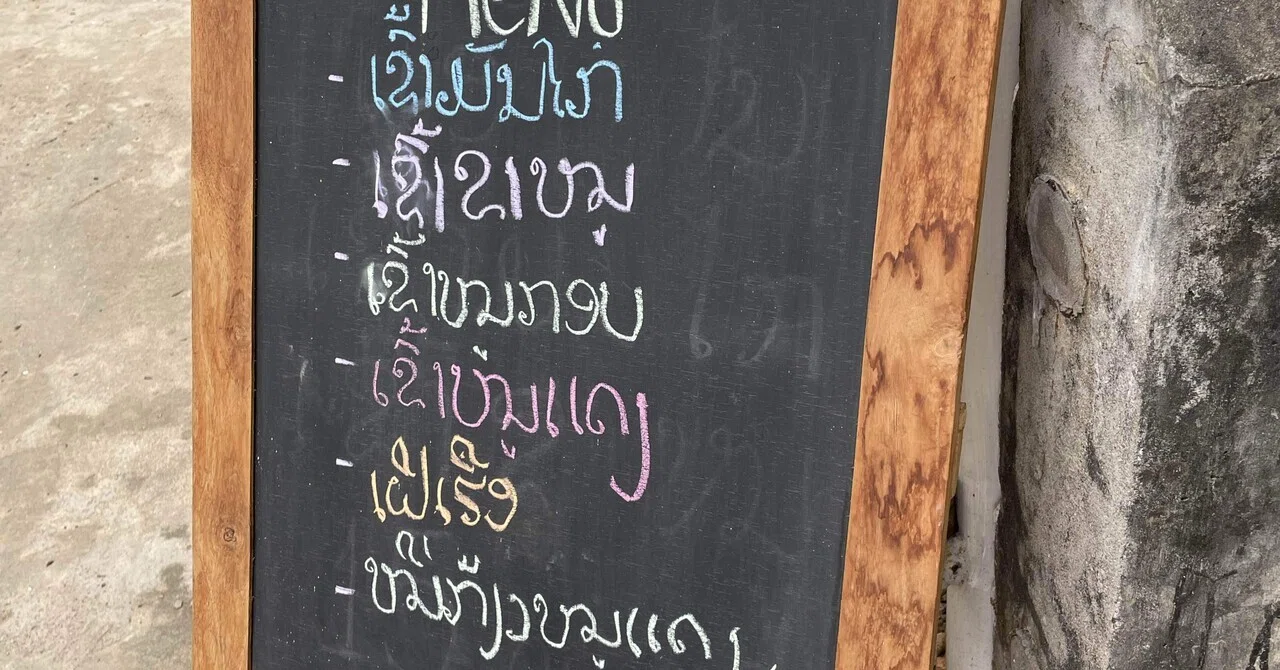 MENU
- ເຂົ້າມັນໄກ່
- ເຂົ້າຂາໝູ
- ເຂົ້າໝູກອບ
- ເຂົ້າໝູແດງ
- ເຝີເຮືອ
- ໝີ່ກ້ຽວໝູແດງ